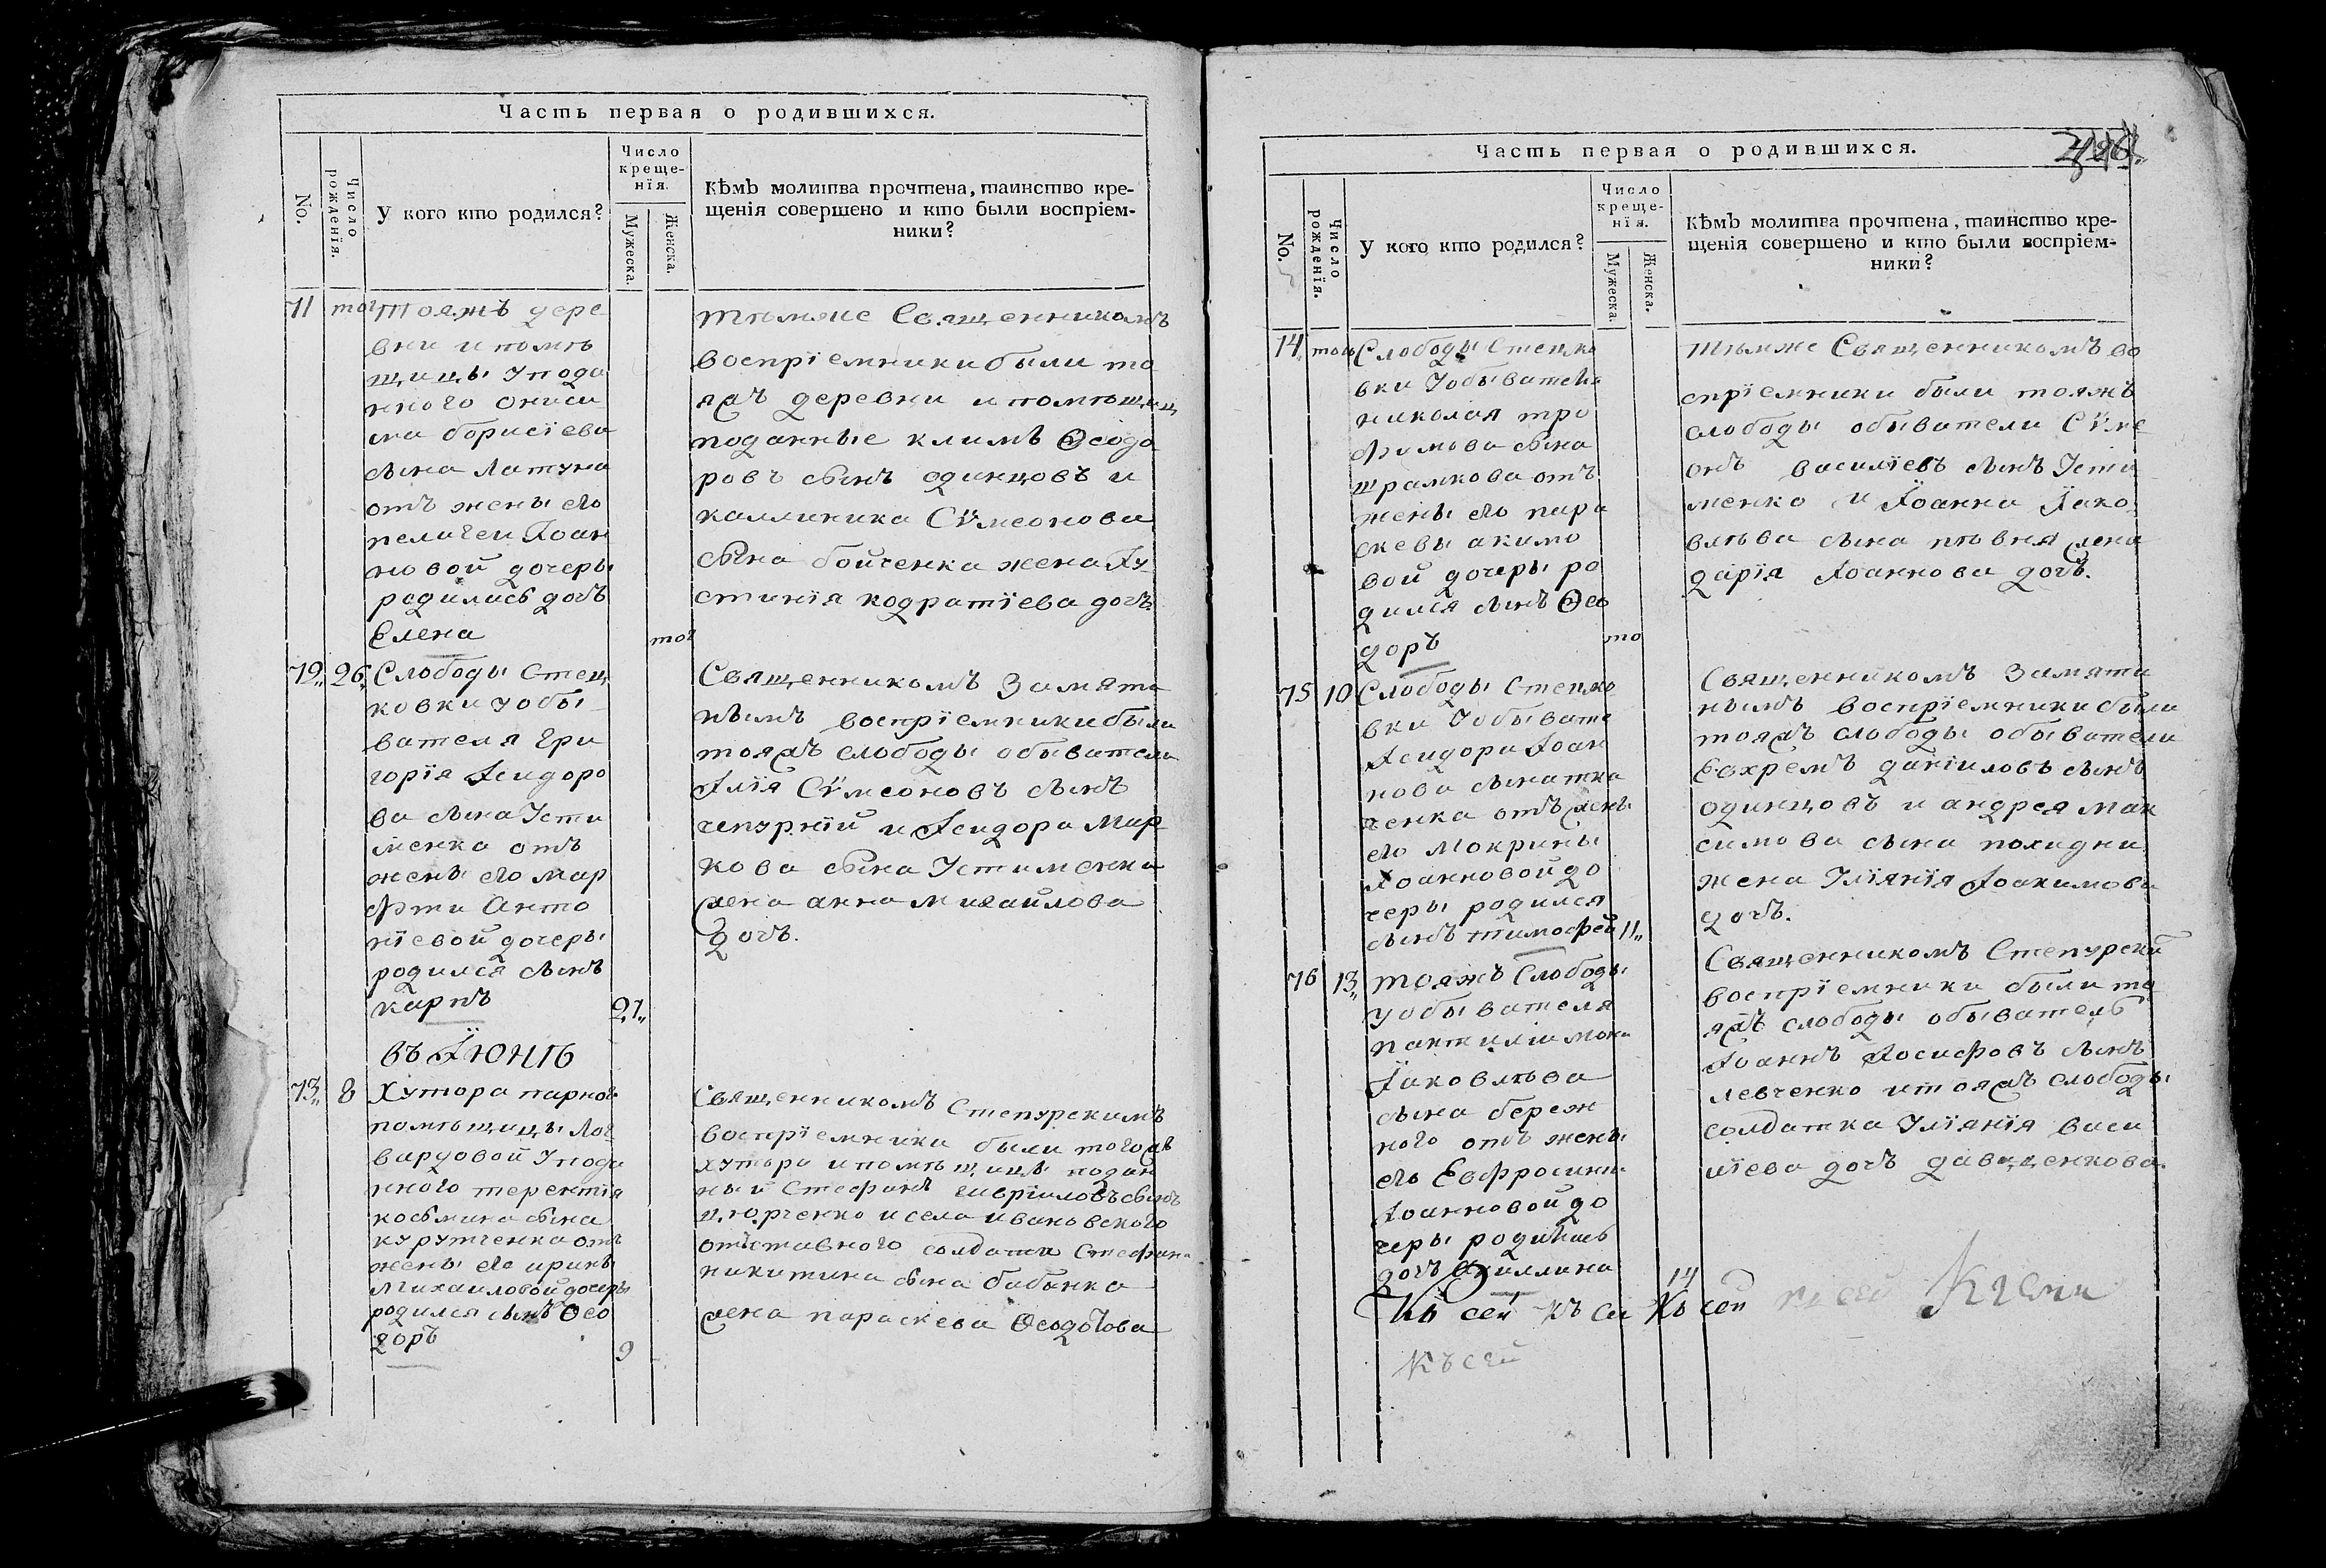 Часть первая о родившихся.
No.
Число рожденія.
У кого кто родился?
Число креще-
нія.
Мужеска.
Женска.
Кѣмъ молитва прочтена, таинство кре-
щенія совершено и кто были воспріем-
ники?
71 тог
тояжъ дере
вни и помѣ
щицы у пода
нного Ониси
ма борисіева
сына Латуна
отъ жены его
пелагеи Іоан
новой дочеры
родилась дочъ
Елена
тог
тѣмже Священникомъ
воспріемники были то
яжъ деревни и помѣщиц
поданные климъ Ѳеодо
ровъ сынъ одинцовъ и
каллиника Сѵмеонова
сына бойченка жена Іу
стинія кодратіева дочъ
72„ 26„
Слободы Стец
ковки у обы
вателя Гри
горія Ісидоро
ва сына Усти
менка отъ
жены его Мар
фти Анто
ніевой дочеры
родился сынъ
карпъ
27„
Священникомъ Замяти
нымъ воспріемники были
тояжъ слободы обыватели
Ілія Сѵмеоновъ сынъ
чепурній и Ісидора Мар
кова сына Устименка
жена анна михайлова
дочъ.
въ Іюнѣ
73„ 8
Хутора парнов
помѣщицы Лог
вардовой у пода
нного терентія
косьмина сына
курутченка отъ
жены его ирины
Михаиловой дочеры
родился сынъ Ѳео
доръ
9
Священникомъ Степурскимъ
воспріемники были тогожъ
хутора и помѣщицы подан
ный Стефанъ гавріиловъ сынъ
и села ивановского
отставного солдата Стефана
никитина сына бабынка
жена параскева Ѳеодотова
Часть первая о родившихся.
No.
Число рожденія.
У кого кто родился?
Число креще-
нія.
Мужеска.
Женска.
Кѣмъ молитва прочтена, таинство кре-
щенія совершено и кто были воспріем-
ники?
74„ тог
Слободы Стецко
вки у обывателя
николая тро
фимова сына
шрамкова отъ
жены его пара
скевы акимо
вой дочеры ро
дился сынъ Ѳео
доръ
то
тѣмже Священникомъ во
спріемники были тояжъ
слободы обыватели Сѵме
онъ василіевъ сынъ Усти
менко и Іоанна Іако
влѣва сына пѣвня жена
дарія Іоаннова дочъ.
75 10
Слободы Стецко
вки у обывате
Ісидора Іоан
нова сына тка
ченка отъ жены
его Мокрины
Іоанновой до
черы родился
сынъ тимофей
11„
Священникомъ Замяти
нымъ воспріемники были
тояжъ слободы обыватели
Евхремъ даніиловъ сынъ
одинцовъ и андрея мак
симова сына походни
жена Уліянія Іоакимова
дочъ.
76 13„
тояжъ Слободы
у обывателя
пантиліимона
Іаковлѣва
сына береж
ного отъ жены
его Евфросины
Іоанновой до
черы родилась
дочъ Акиллина
14
Священникомъ Степурскій
воспріемники были то
яжъ слободы обыватель
Іоаннъ Іосифовъ сынъ
левченко и тояжъ слободы
солдатка Уліянія васи
ліева дочъ давиденкова.
Къ сей къ се Къ сей къ сей
къ сей